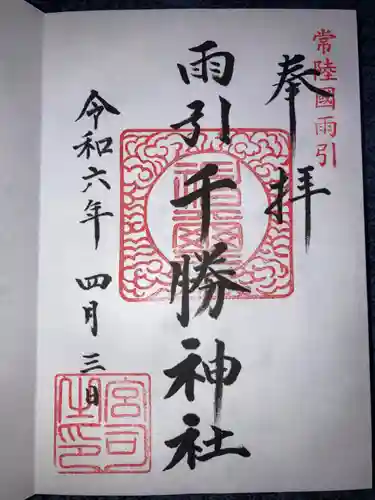 常陸國雨引
奉拝
雨引千勝神社
令和六年四月三日
宮司之印